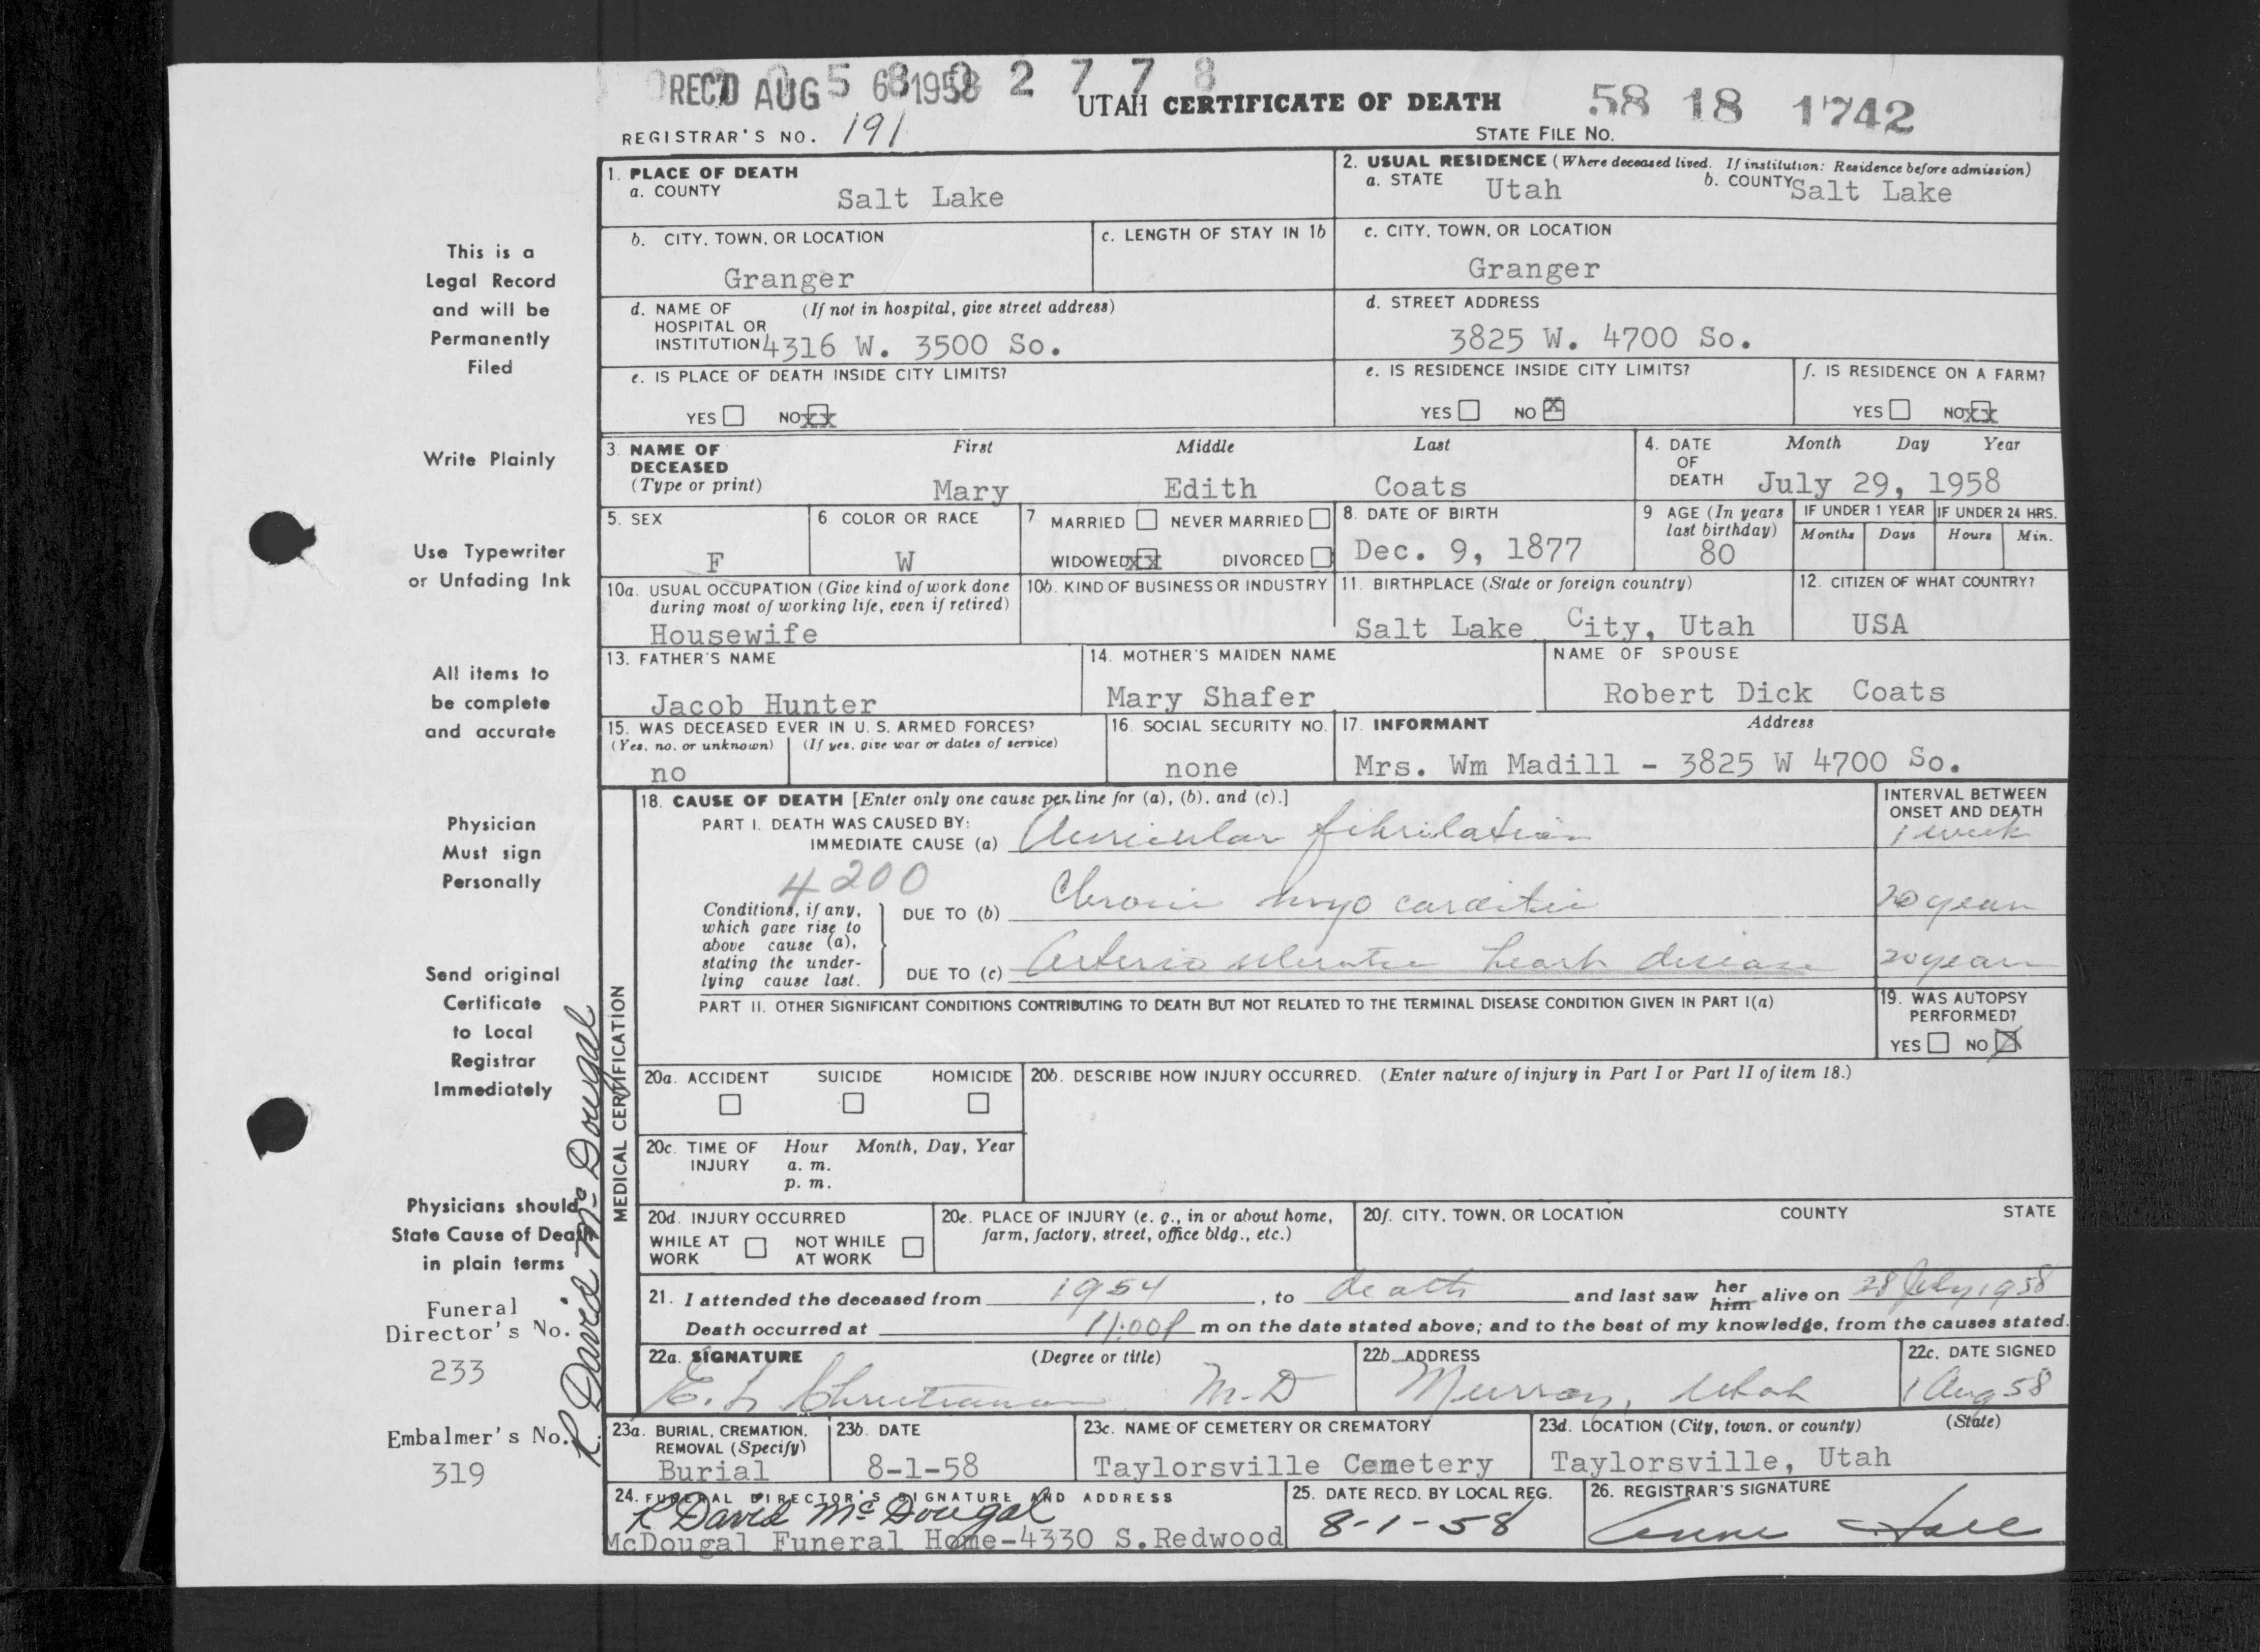 REC'D AUG 5 6 1958 2 7 7 8
UTAH CERTIFICATE OF DEATH
58 18 1742
REGISTRAR'S NO. 191
STATE FILE NO.
1. PLACE OF DEATH
a. COUNTY Salt Lake
2. USUAL RESIDENCE (Where deceased lived. If institution: Residence before admission)
a. STATE Utah b. COUNTY Salt Lake
b. CITY, TOWN, OR LOCATION
Granger
c. LENGTH OF STAY IN 1b
c. CITY, TOWN, OR LOCATION
Granger
d. NAME OF (If not in hospital, give street address)
HOSPITAL OR
INSTITUTION 4316 W. 3500 So.
d. STREET ADDRESS
3825 W. 4700 So.
e. IS PLACE OF DEATH INSIDE CITY LIMITS?
YES NO XX
e. IS RESIDENCE INSIDE CITY LIMITS?
YES NO X
f. IS RESIDENCE ON A FARM?
YES NO XX
3. NAME OF DECEASED (Type or print)
First Middle Last
Mary Edith Coats
4. DATE OF DEATH
Month Day Year
July 29, 1958
5. SEX
F
6. COLOR OR RACE
W
7. MARRIED NEVER MARRIED
WIDOWED XX DIVORCED
8. DATE OF BIRTH
Dec. 9, 1877
9. AGE (In years last birthday)
80
IF UNDER 1 YEAR
Months Days
IF UNDER 24 HRS.
Hours Min.
10a. USUAL OCCUPATION (Give kind of work done
during most of working life, even if retired)
Housewife
10b. KIND OF BUSINESS OR INDUSTRY
11. BIRTHPLACE (State or foreign country)
Salt Lake City, Utah
12. CITIZEN OF WHAT COUNTRY?
USA
13. FATHER'S NAME
Jacob Hunter
14. MOTHER'S MAIDEN NAME
Mary Shafer
NAME OF SPOUSE
Robert Dick Coats
15. WAS DECEASED EVER IN U. S. ARMED FORCES?
(Yes, no, or unknown) (If yes, give war or dates of service)
no
16. SOCIAL SECURITY NO.
none
17. INFORMANT Address
Mrs. Wm Madill - 3825 W 4700 So.
MEDICAL CERTIFICATION
18. CAUSE OF DEATH [Enter only one cause per line for (a), (b), and (c).]
INTERVAL BETWEEN
ONSET AND DEATH
PART I. DEATH WAS CAUSED BY:
IMMEDIATE CAUSE (a) Auricular fibrilation 1 week
4200
Conditions, if any,
which gave rise to
above cause (a),
stating the under-
lying cause last.
DUE TO (b) Chronic myo carditis 20 years
DUE TO (c) Arterio sclerotic heart disease 20 years
PART II. OTHER SIGNIFICANT CONDITIONS CONTRIBUTING TO DEATH BUT NOT RELATED TO THE TERMINAL DISEASE CONDITION GIVEN IN PART I(a)
19. WAS AUTOPSY
PERFORMED?
YES NO X
20a. ACCIDENT SUICIDE HOMICIDE
20b. DESCRIBE HOW INJURY OCCURRED. (Enter nature of injury in Part I or Part II of item 18.)
20c. TIME OF INJURY Hour Month, Day, Year
a. m.
p. m.
20d. INJURY OCCURRED
WHILE AT WORK NOT WHILE AT WORK
20e. PLACE OF INJURY (e. g., in or about home,
farm, factory, street, office bldg., etc.)
20f. CITY, TOWN, OR LOCATION COUNTY STATE
21. I attended the deceased from 1954, to death and last saw her him alive on 28 July 1958
Death occurred at 11:00 P m on the date stated above; and to the best of my knowledge, from the causes stated.
22a. SIGNATURE (Degree or title)
E. L. Christianson M.D
22b. ADDRESS
Murray, Utah
22c. DATE SIGNED
1 Aug 58
23a. BURIAL, CREMATION,
REMOVAL (Specify)
Burial
23b. DATE
8-1-58
23c. NAME OF CEMETERY OR CREMATORY
Taylorsville Cemetery
23d. LOCATION (City, town, or county) (State)
Taylorsville, Utah
24. FUNERAL DIRECTOR'S SIGNATURE AND ADDRESS
R David McDougal
McDougal Funeral Home-4330 S.Redwood
25. DATE RECD. BY LOCAL REG.
8-1-58
26. REGISTRAR'S SIGNATURE
This is a
Legal Record
and will be
Permanently
Filed
Write Plainly
Use Typewriter
or Unfading Ink
All items to
be complete
and accurate
Physician
Must sign
Personally
Send original
Certificate
to Local
Registrar
Immediately
Physicians should
State Cause of Death
in plain terms
Funeral
Director's No.
233
Embalmer's No.
319
R David McDougal